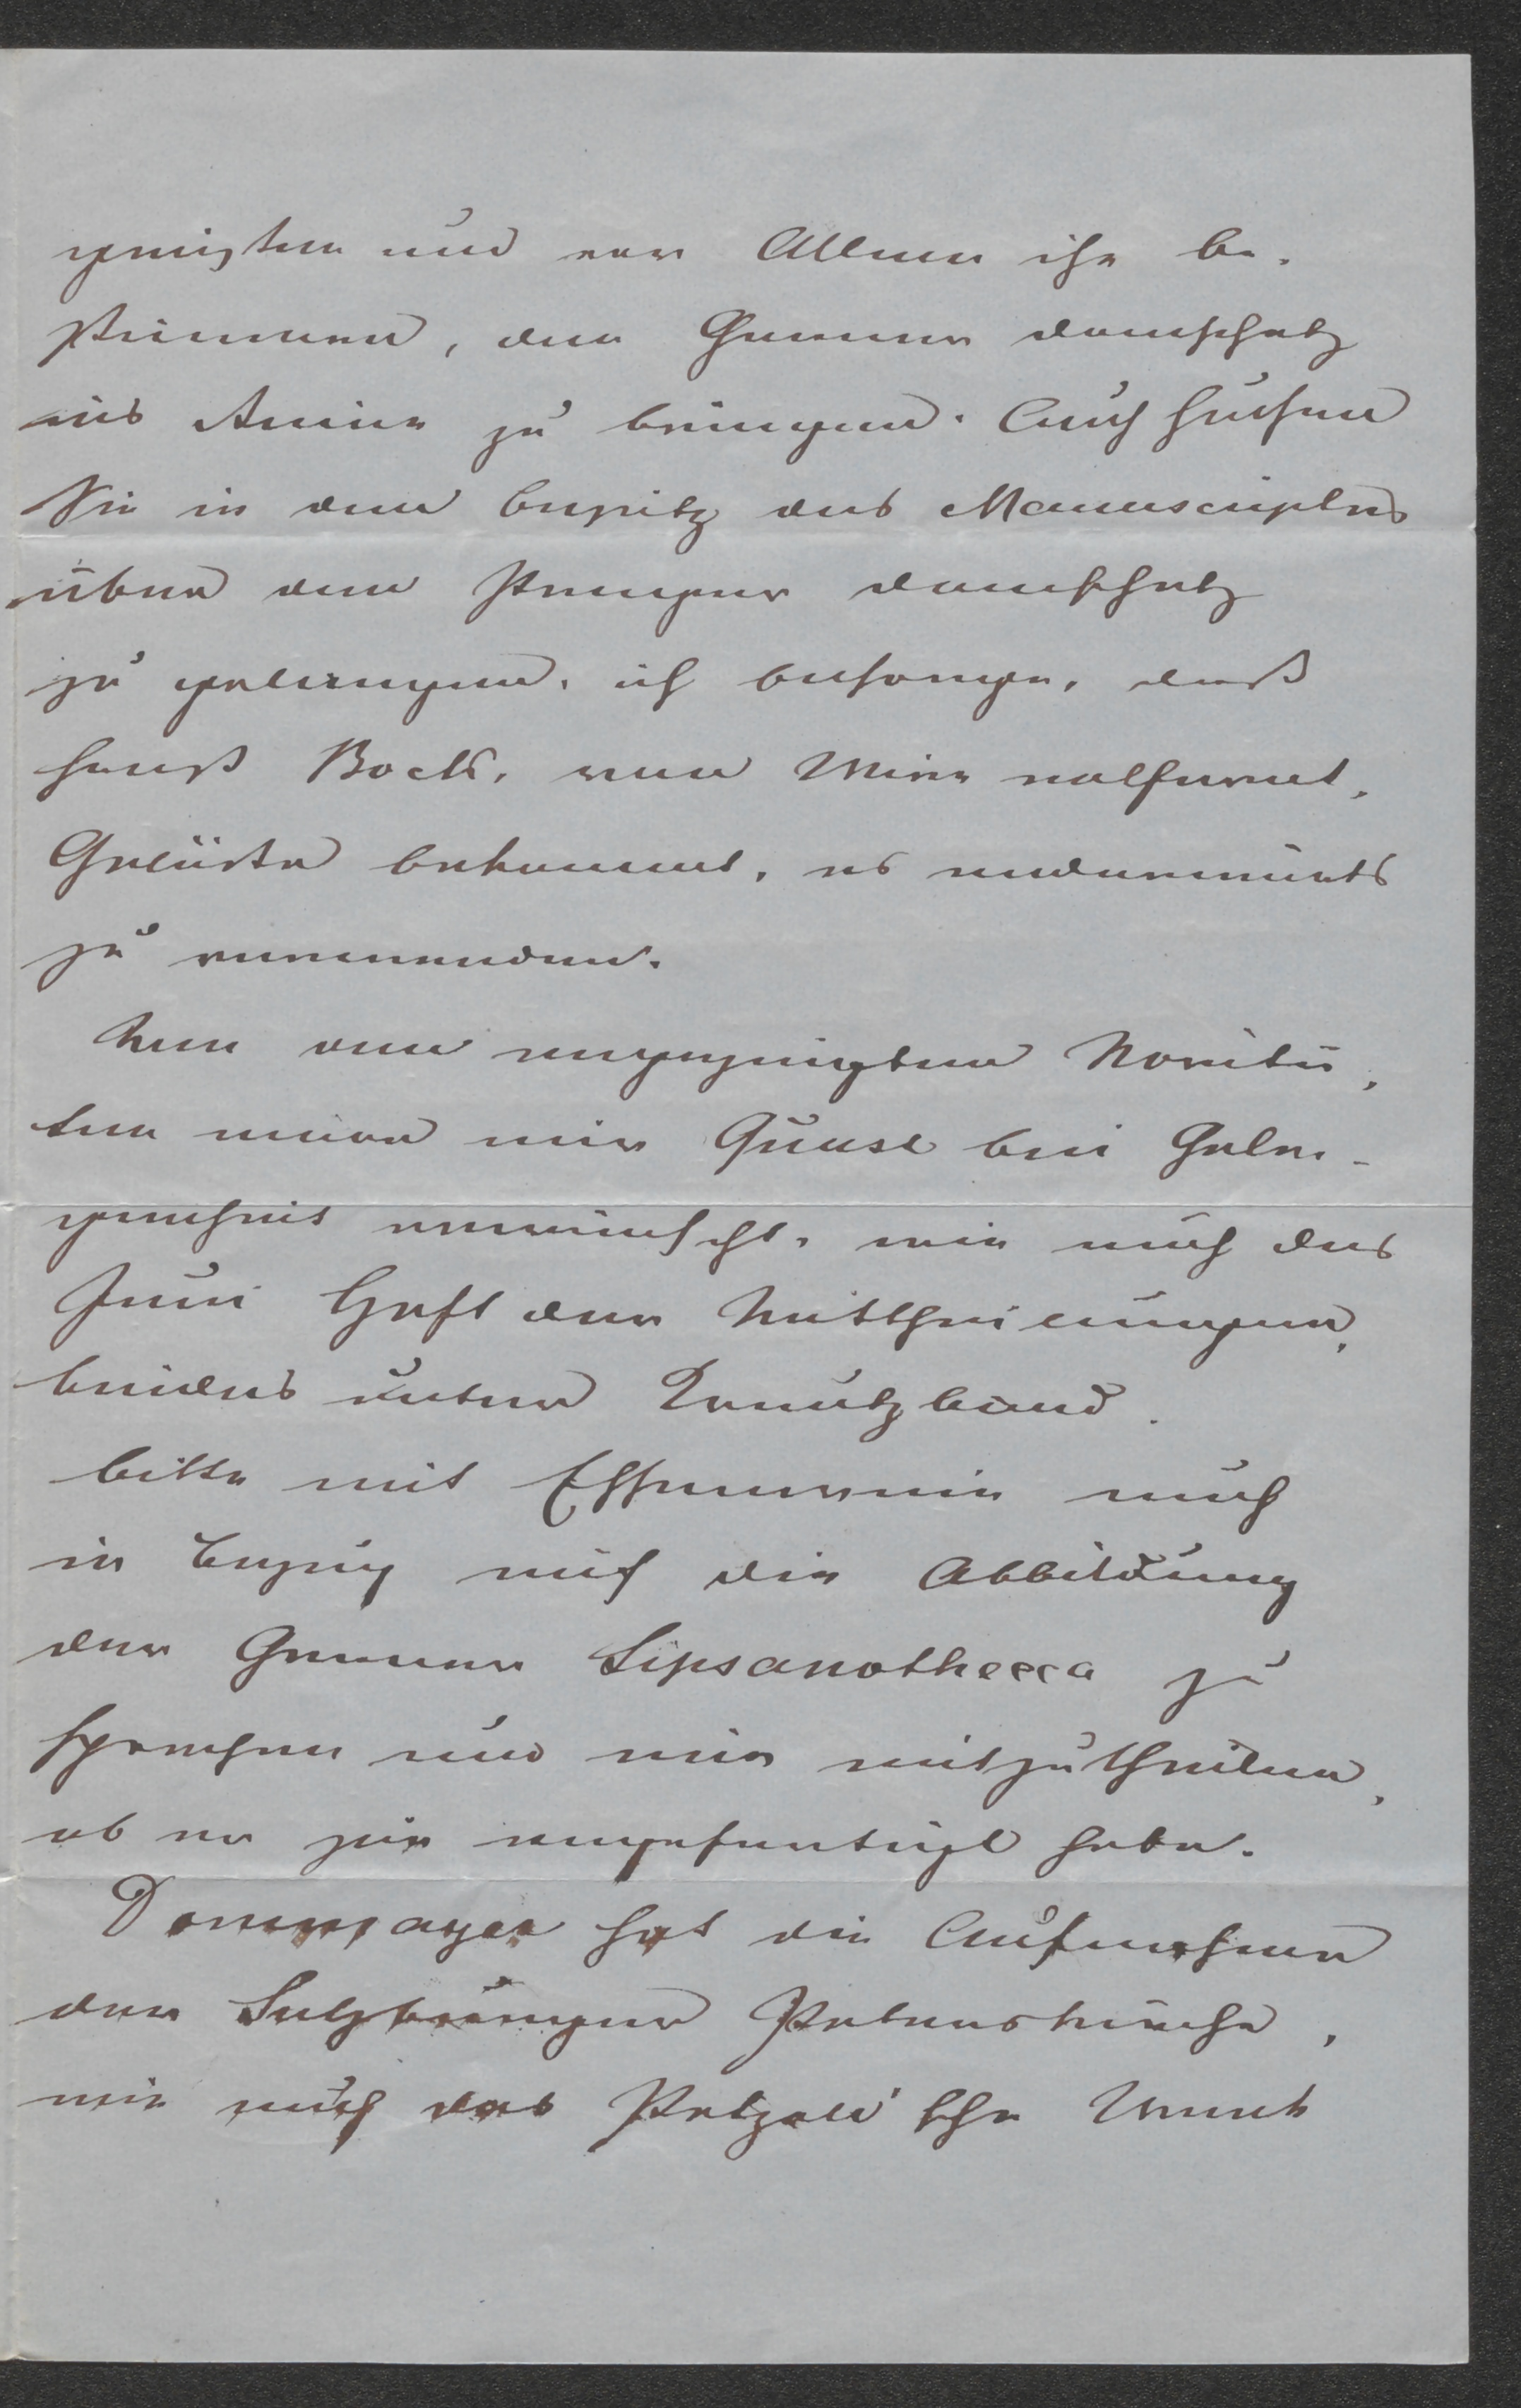 zeigten und vor Allem ihn be-
stimmen, den Graner Domschatz
ins Reine zu bringen. Auch suchen
Sie in den Besitz des Manuscriptes
über den Prager Domschatz
zu gelangen, ich besorge, daß
sonst Bock, von Wien entfernt,
Gelüste bekommt, es anderwärts
zu verwenden.
Von den angezeigten Novitä-
ten wären mir Quast bei Gele-
genheit erwünscht, wie auch das
Juni Heft der Mittheilungen,
beides unter Kreuzband.
bitte mit Essenwein auch
in Bezug auf die Abbildung
der Graner Lipsanotheca zu
sprechen und mir mitzutheilen,
ob er sie angefertigt habe.
hat die Aufnahmen
der Salzburger Peterskirche,
wie auch das Petzold'sche Werk